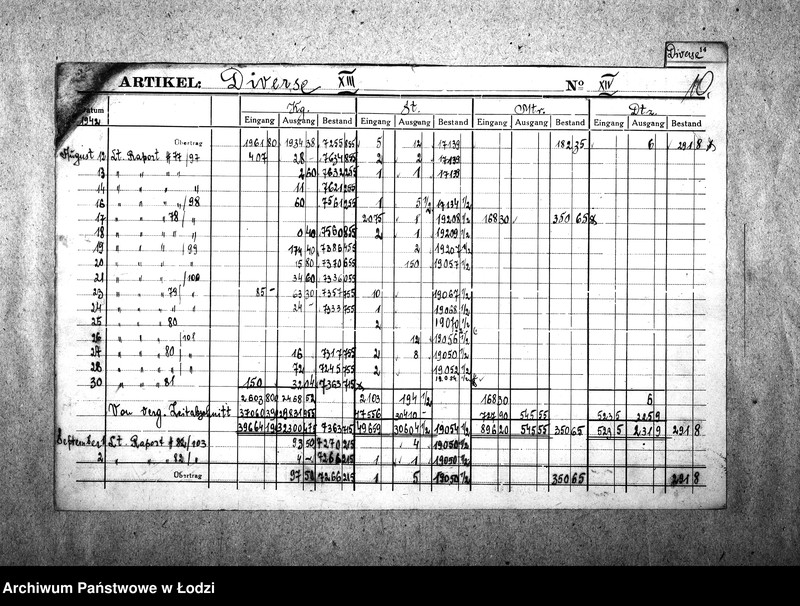 Diverse
ARTIKEL: Diverse XIII No XIV 10
Datum 1942 Kg. St. Mtr. Dtz.
Eingang Ausgang Bestand Eingang Ausgang Bestand Eingang Ausgang Bestand Eingang Ausgang Bestand
Übertrag 1961 80 1934 38 7255 855 5 12 17139 182 35 6 291 8
August 12 Lt. Raport # 77/97 407 28 - 7634 855 2 2 17139
13 " " " 2 60 7632 255 1 1 17139
14 " " " " 11 7621 255
16 " " " /98 60 7561 255 1 5 1/2 17134 1/2
17 " " 78 2075 1 19208 1/2 168 30 350 65
18 " " " " 0 40 7560 855 2 1 19209 1/2
19 " " " /99 174 40 7386 455 2 19207 1/2
20 " " " " 15 80 7370 655 150 19057 1/2
21 " " " /100 34 60 7336 055
23 " " 79 85 - 63 30 7357 755 10 19067 1/2
24 " " " " 24 - 7333 755 1 19068 1/2
25 " " 80 2 19070 1/2
26 " " " /101 12 19058 1/2
27 " " 80 16 7317 755 2 8 19050 1/2
28 " " " " 72 7245 755 2 19052 1/2
30 " " 81 150 32 04 7363 715
2603 800 2468 52 2103 194 1/2 168 30 6
Von verg. Zeitabschnitt 37060 39 29831 955 47556 30410 - 727 90 545 55 523 5 205 9
39664 19 32300 475 7363 715 49659 30604 1/2 19054 1/2 896 20 545 55 350 65 523 5 231 9 291 8
September 1 Lt. Raport # 82/103 93 50 7270 215 4 19050 1/2
2 " " 82/" 4 - 7266 215 1 1 19050 1/2
Übertrag 97 50 7266 215 1 5 19050 1/2 350 65 291 8
Archiwum Państwowe w Łodzi